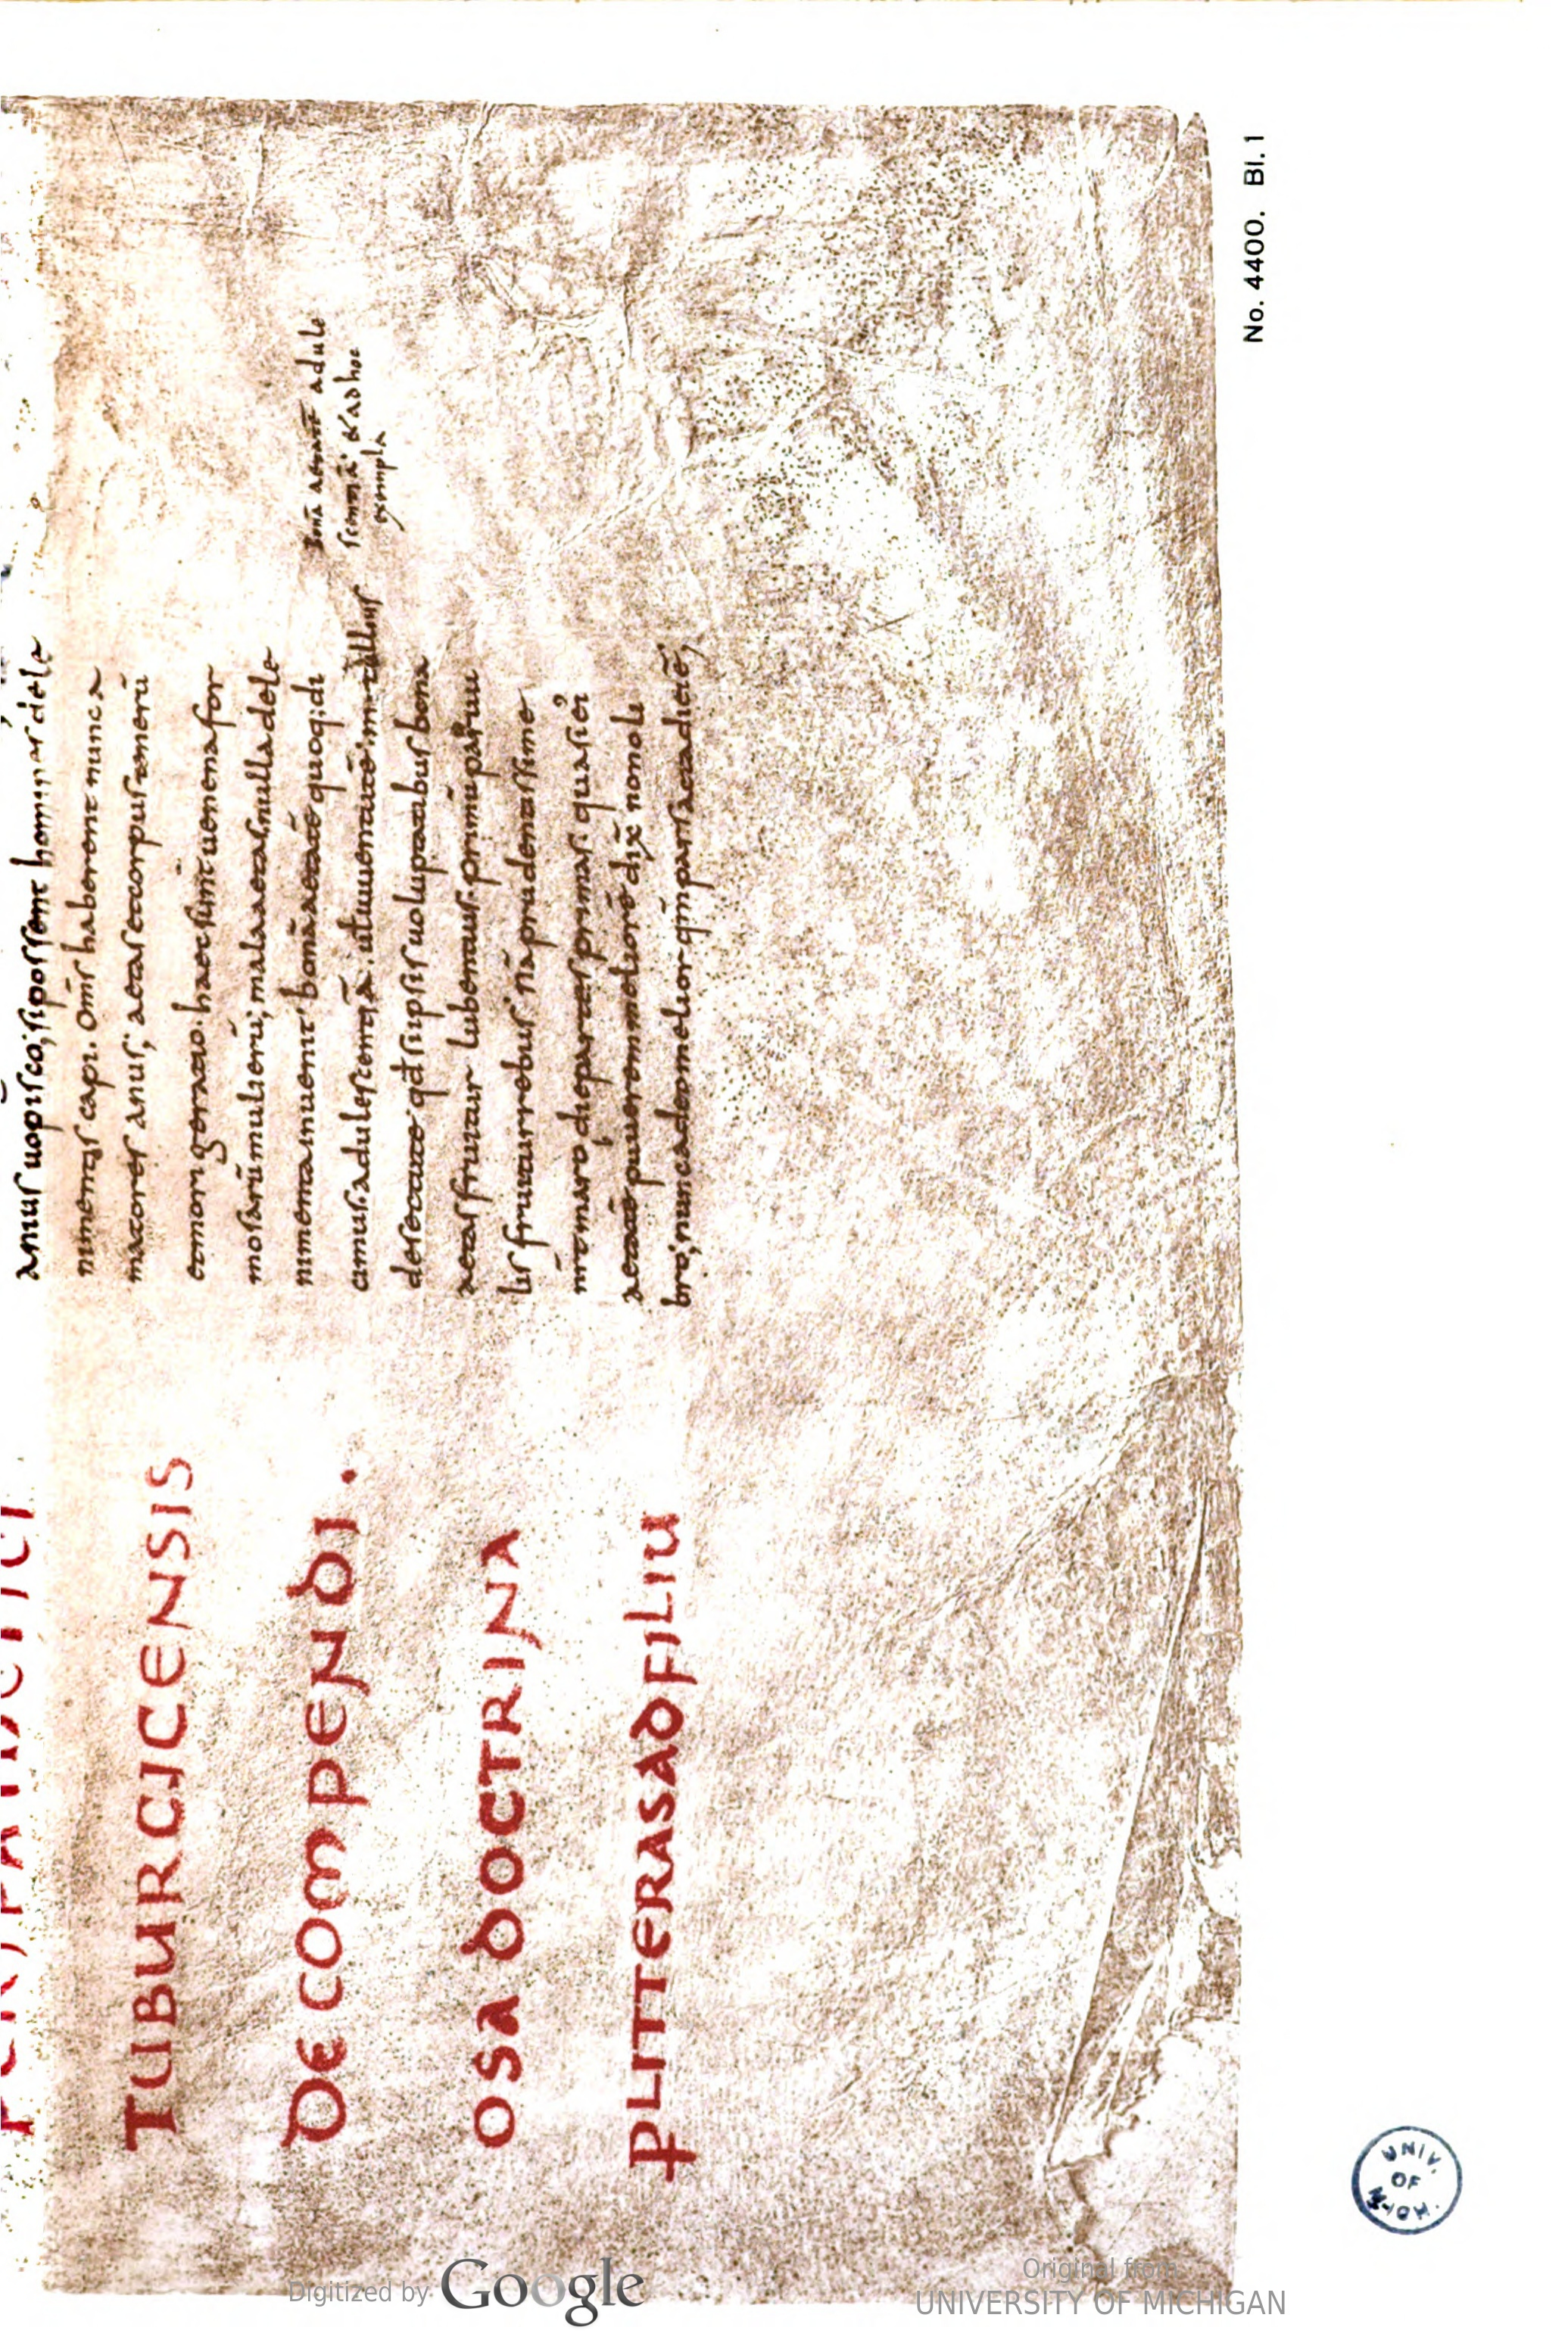 TUBURCICENSIS
DE COMPENDI.
OSA DOCTRINA
P̱LITTERASADFILIU
annus uopisco; si possent homines dele
nimentis capi. Om̄s haberent nunc a
matores anus; aetas et corpus tenerū
et morigeratio. haec sunt uenena for
mosarū mulierū; mala aetas nulla dele
nimenta inuenit. bonā aetatē quoq; di
cimus adulescentiā. ut iuuentutē in tullius
desenectute. qd̄ si ipsis uoluptatibus bona
aetas fruitur lubentius. primū paruu
lis fruitur rebus. nā prudentissime
nr̄ maro diei partes primas quasi ei’
aetatē meliorē dix̄ nono le
bro; nunc adeo melior qm̄ pars acta diei ē;
Bonā aetatē adule
scentiā. & ad hoc
exempla
No. 4400. Bl. 1
UNIV.
OF
MICH.
Digitized by Google
Original from
UNIVERSITY OF MICHIGAN